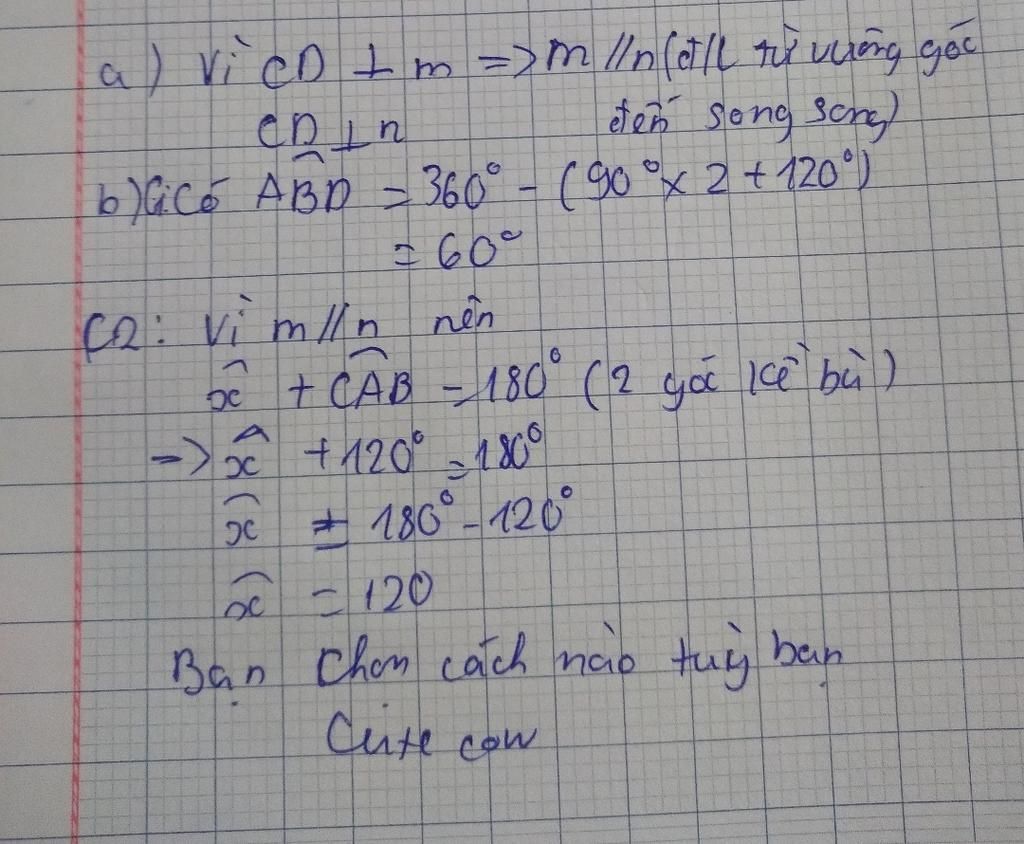 a) Vì CD ⊥ m => m // n (đ/L từ vuông góc
CD ⊥ n đến song song)
b) Góc ABD = 360° - (90° x 2 + 120°)
= 60°
C2: Vì m // n nên
x̂ + CAB = 180° (2 góc kề bù)
=> x̂ + 120° = 180°
x̂ = 180° - 120°
x̂ = 120
Bạn Chọn cách nào tuỳ bạn
Cute cow